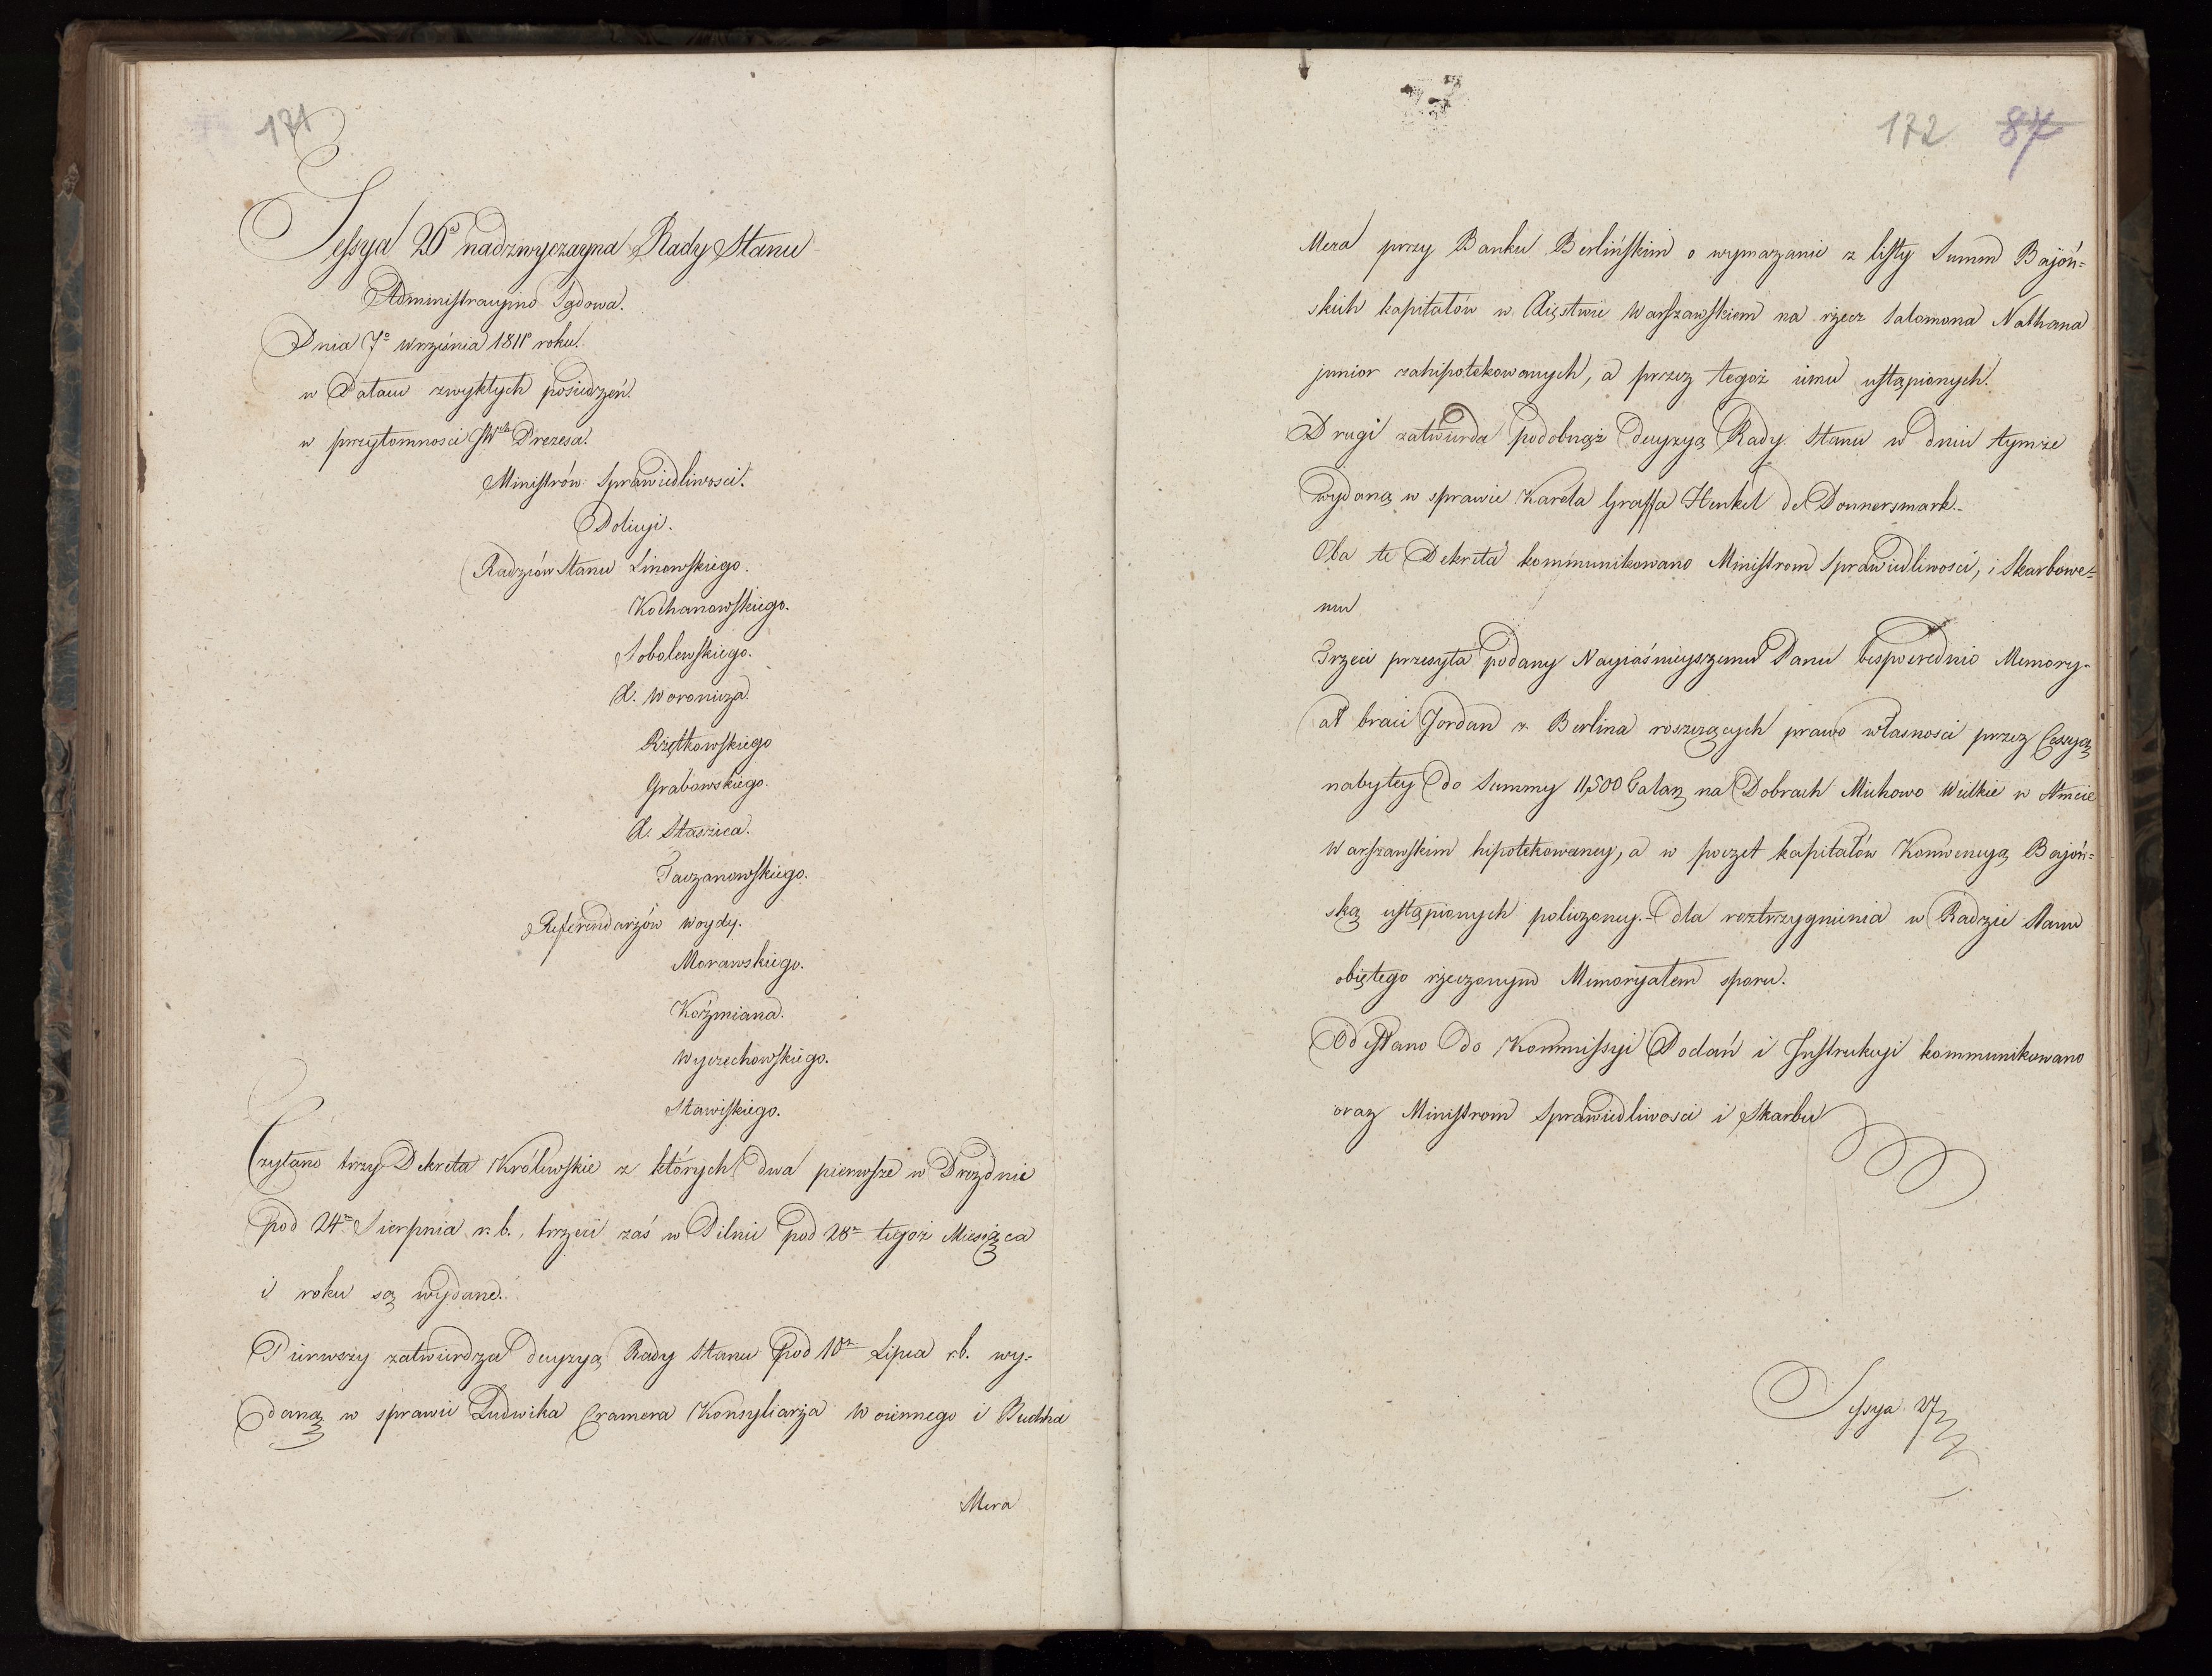 171
Sessya 26ª nadzwyczayna Rady Stanu
Administracyino Sądowa.
Dnia 7º Września 1811º roku.
w Pałacu zwykłych posiedzeń.
w przytomności JWgo Prezesa.
Ministrów: Sprawiedliwości.
Policyi.
Radzców Stanu Linowskiego.
Kochanowskiego.
Sobolewskiego.
X. Woronicza.
Rzętkowskiego
Grabowskiego.
X. Staszica.
Taczanowskiego.
Referendarzów Woydy.
Morawskiego.
Koźmiana.
Wyczechowskiego.
Stawiskiego.
Czytano trzy Dekreta Królewskie z których dwa pierwsze w Dreźnie
pod 24m Sierpnia r. b., trzeci zaś w Pilnic pod 28m tegoż Miesiąca
i roku są wydane.
Pierwszy zatwierdza decyzyą Rady Stanu pod 10m Lipca r.b. wy-
daną w sprawie Ludwika Cramera Konsyliarza Woiennego i Buchhal
Mera
172 87
Mera przy Banku Berlińskim o wymazanie z listy Summ Bajoń-
skich kapitałów w Xięstwie Warszawskiem na rzecz Salomona Nathana
junior zahipotekowanych, a przez tegoż iemu ustąpionych.
Drugi zatwierda podobnąż decyzyą Rady Stanu w dniu tymże
wydaną w sprawie Karola Graffa Henkel de Donnersmark.-
Oba te Dekreta kommunikowano Ministrom Sprawiedliwości, i Skarbowe-
mu
Trzeci przesyła podany Nayiaśnieyszemu Panu bespośrednio Memory-
ał braci Jordan z Berlina roszczących prawo własności przez Cessyą
nabytey do Summy 11,500 Talarz na Dobrach Michowo Wielkie w Atmcie
Warszawskim hipotekowaney, a w poczet kapitałów Konwencyą Bajoń-
ską ustąpionych policzoney.- dla roztrzygnienia w Radzie Stanu
obiętego rzeczonym Memoryałem sporu.
Odesłano do Kommissyi Podań i Instrukcyi kommunikowano
oraz Ministrom Sprawiedliwości i Skarbu
Sessya 27